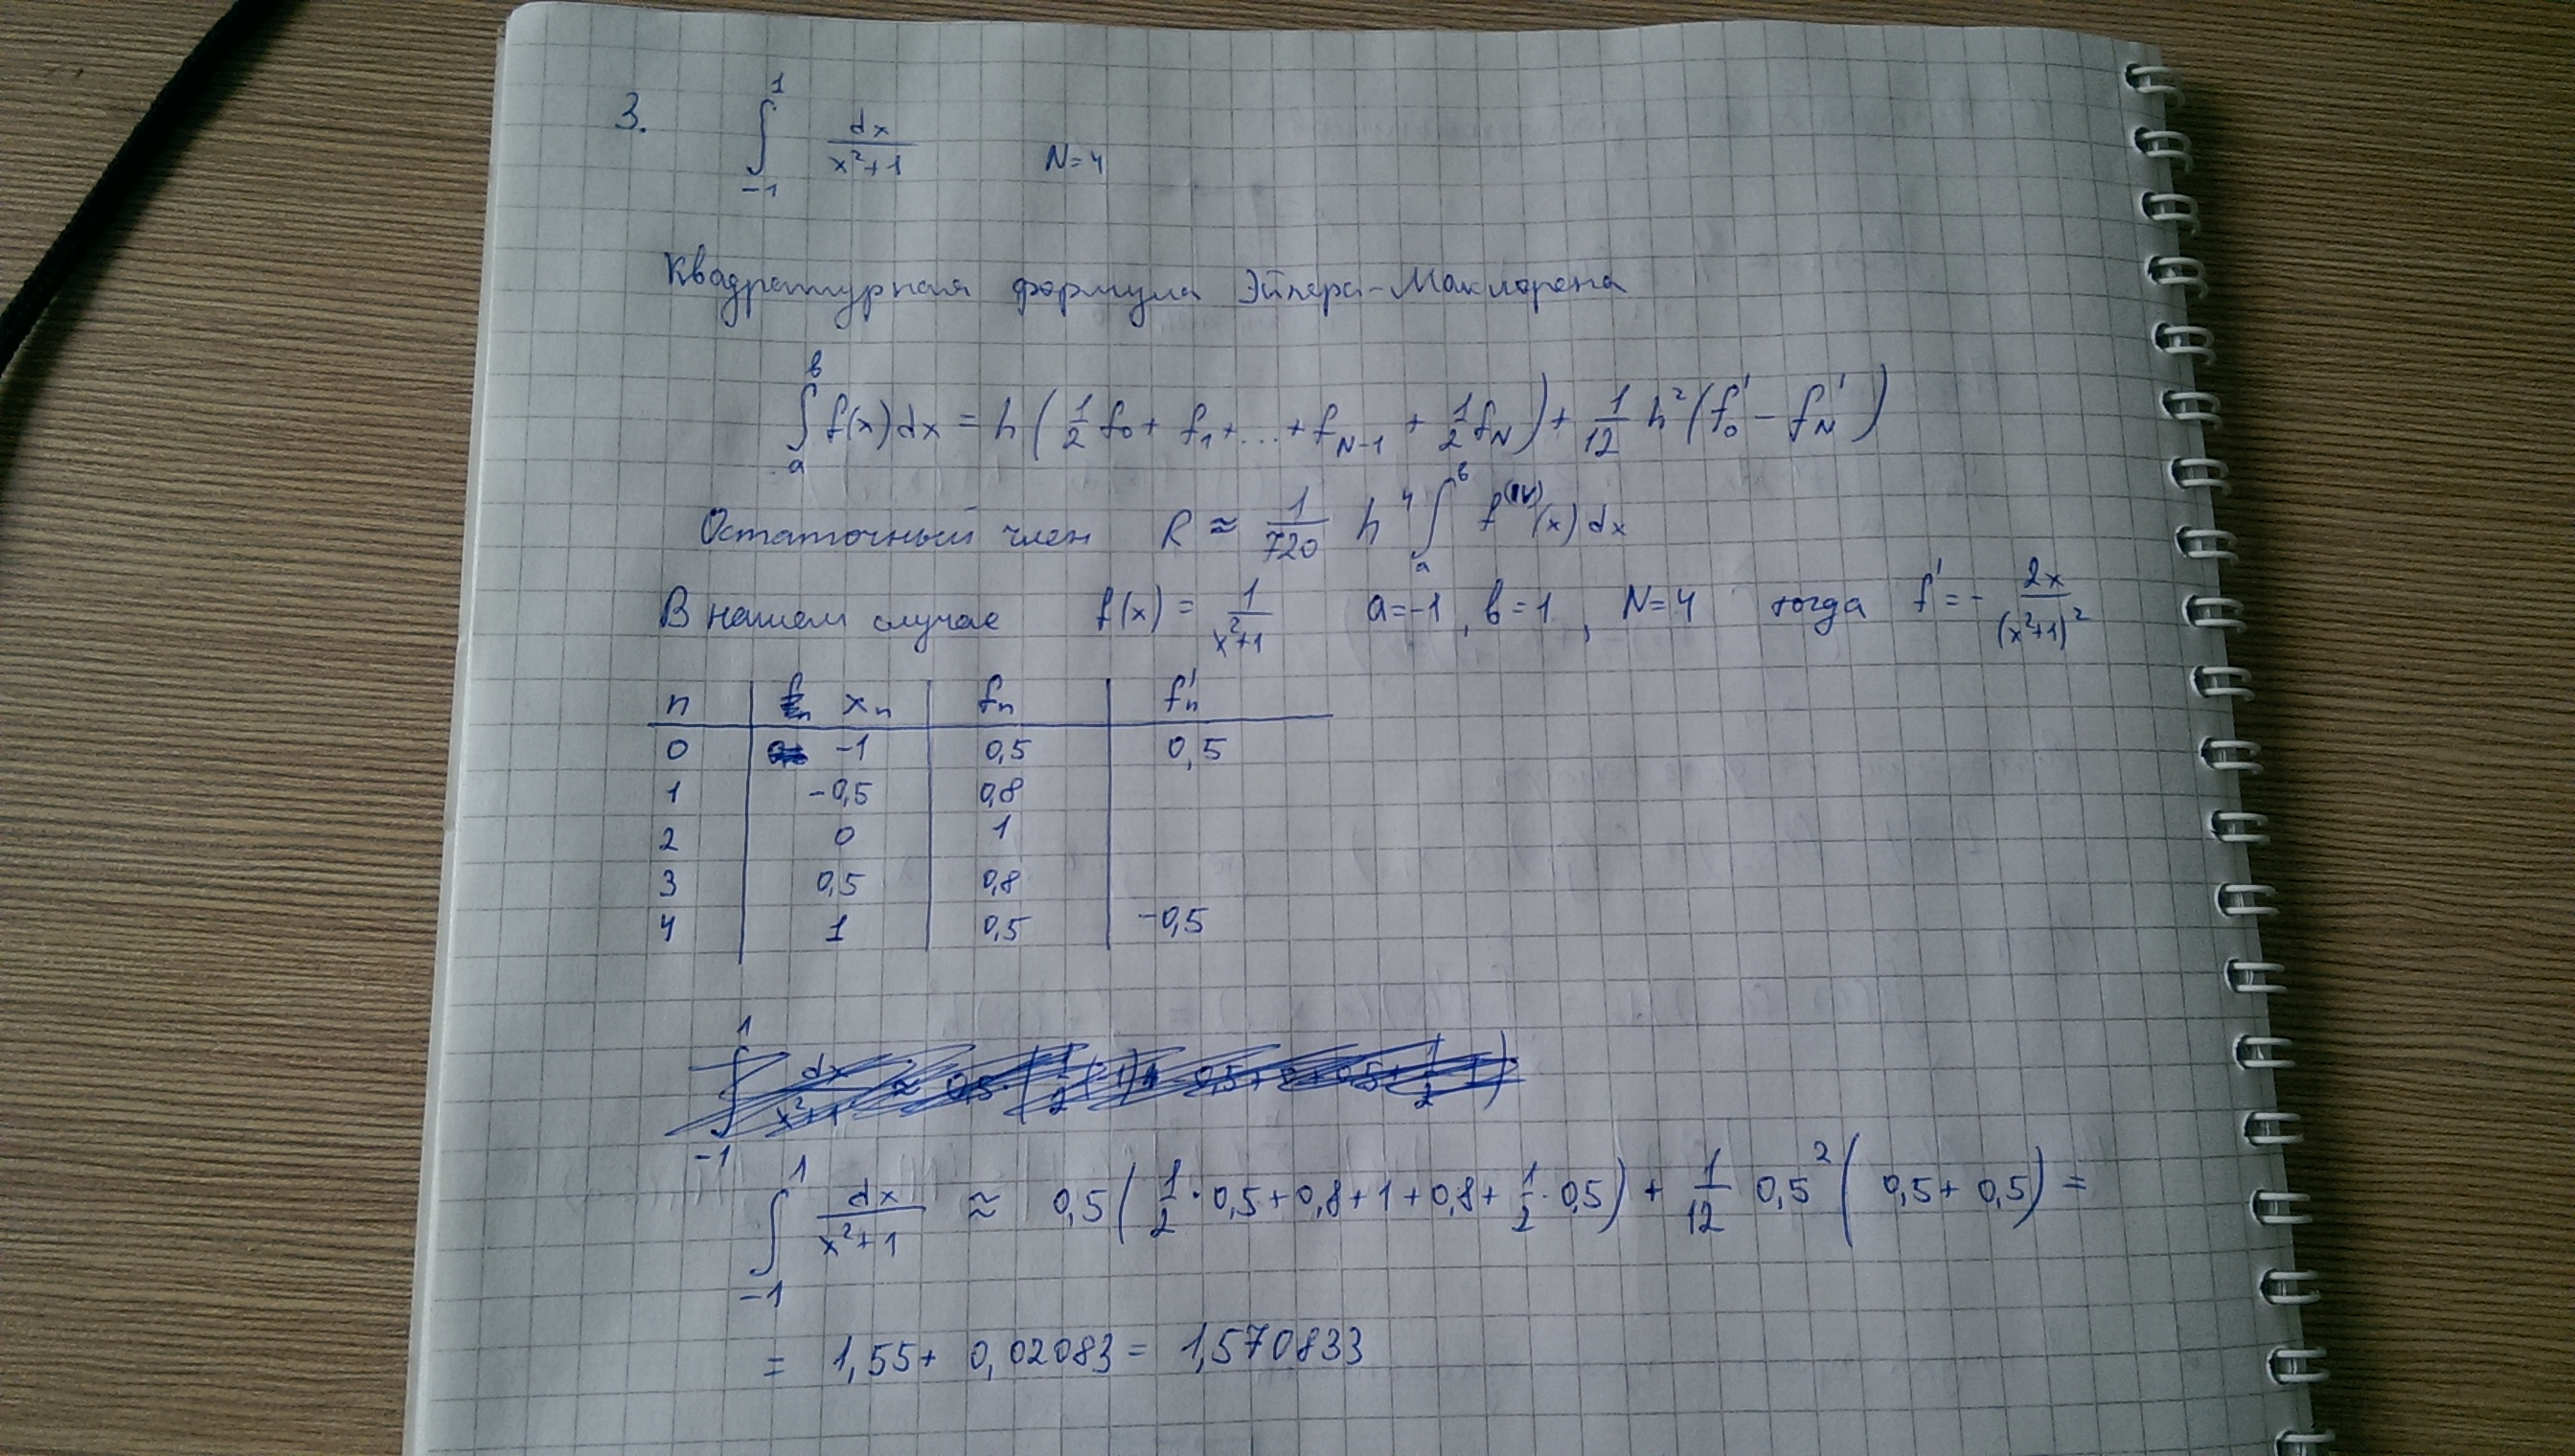 3. ∫₋₁¹ dx/(x²+1) N=4
Квадратурная формула Эйлера-Маклорена
∫ₐᵇ f(x)dx = h(1/2 f₀ + f₁ + ... + f_{N-1} + 1/2 f_N) + 1/12 h²(f₀' - f_N')
Остаточный член R ≈ 1/720 h⁴ ∫ₐᵇ f^(IV)(x)dx
В нашем случае f(x) = 1/(x²+1) a=-1, b=1, N=4 тогда f' = - 2x/(x²+1)²
n xₙ fₙ f'ₙ
0 -1 0,5 0,5
1 -0,5 0,8
2 0 1
3 0,5 0,8
4 1 0,5 -0,5
∫₋₁¹ dx/(x²+1) ≈ 0,5(1/2 · 0,5 + 0,8 + 1 + 0,8 + 1/2 · 0,5) + 1/12 0,5²(0,5 + 0,5) =
= 1,55 + 0,02083 = 1,570833